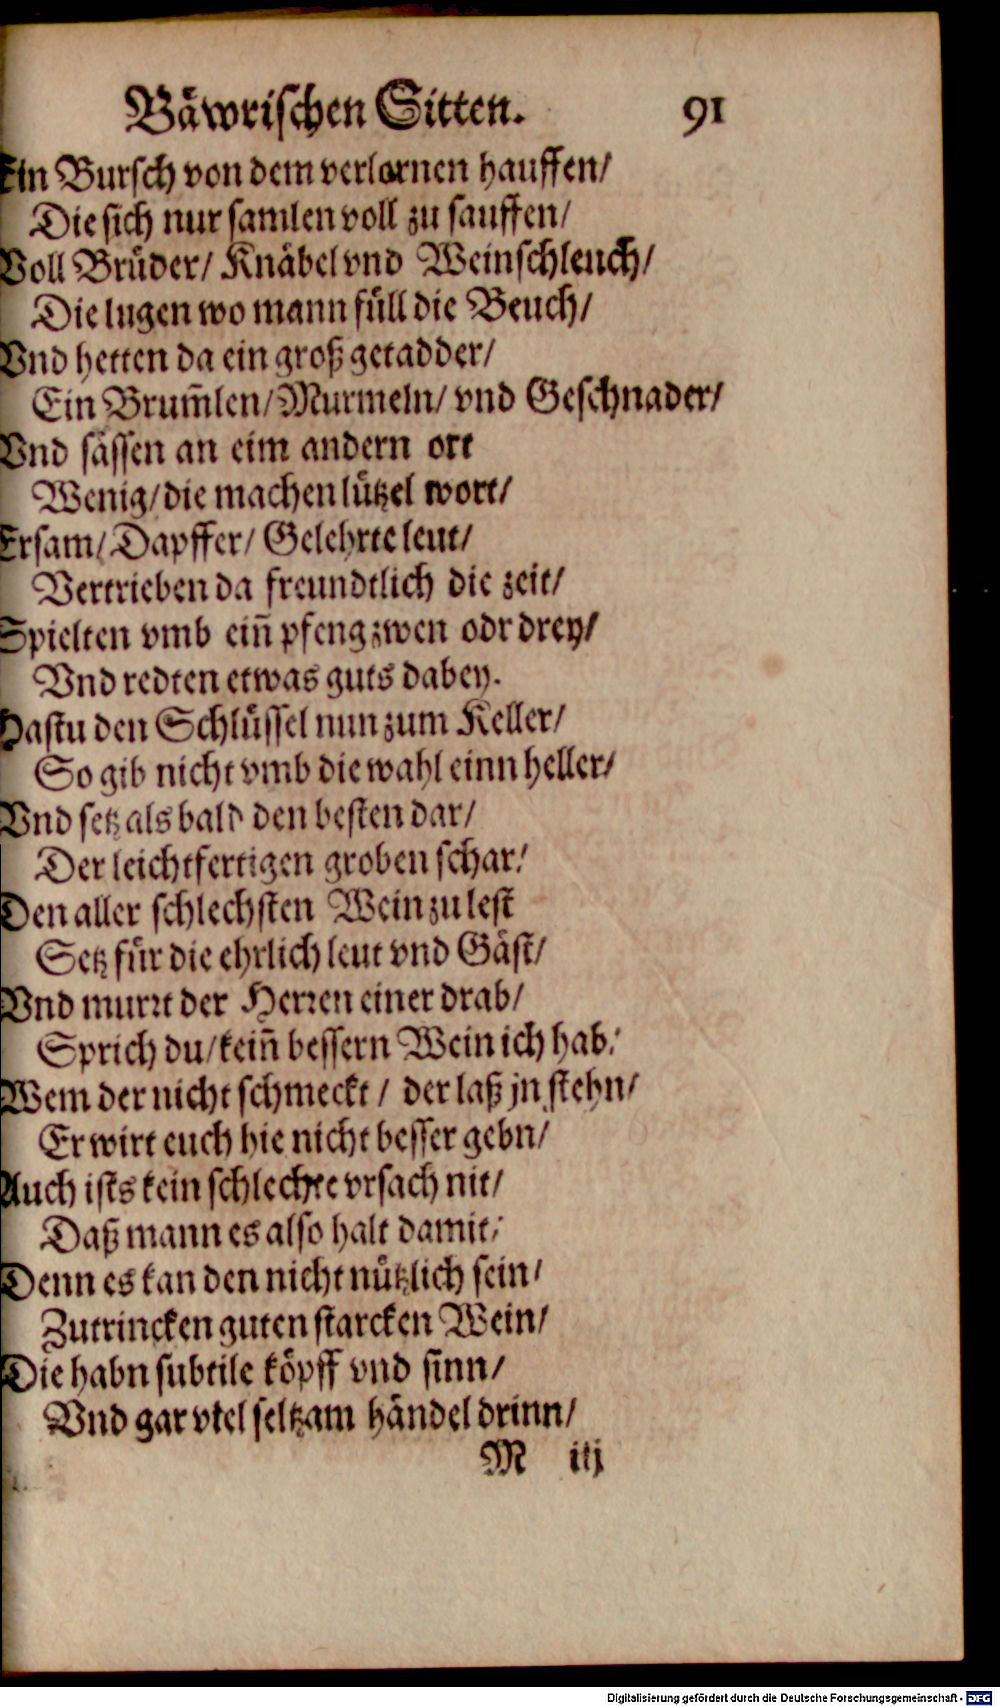 Bäwrischen Sitten. 91
Ein Bursch von dem verlornen hauffen/
Die sich nur samlen voll zu sauffen/
Voll Brüder/ Knäbel vnd Weinschleuch/
Die lugen wo mann füll die Beuch/
Vnd hetten da ein groß getadder/
Ein Brum̃len/ Murmeln/ vnd Geschnader/
Vnd sässen an eim andern ort
Wenig/ die machen lützel wort/
Ersam/ Dapffer/ Gelehrte leut/
Vertrieben da freundtlich die zeit/
Spielten vmb eiñ pfeng zwen odr drey/
Vnd redten etwas guts dabey.
Hastu den Schlüssel nun zum Keller/
So gib nicht vmb die wahl einn heller/
Vnd setz als bald den besten dar/
Der leichtfertigen groben schar:
Den aller schlechsten Wein zu lest
Setz für die ehrlich leut vnd Gäst/
Vnd murrt der Herren einer drab/
Sprich du/ keiñ bessern Wein ich hab:
Wem der nicht schmeckt/ der laß jn stehn/
Er wirt euch hie nicht besser gebn/
Auch ists kein schlechte vrsach nit/
Daß mann es also halt damit:
Denn es kan den nicht nützlich sein/
Zutrincken guten starcken Wein/
Die habn subtile köpff vnd sinn/
Vnd gar vtel seltzam händel drinn/
M iij
Digitalisierung gefördert durch die Deutsche Forschungsgemeinschaft - DFG